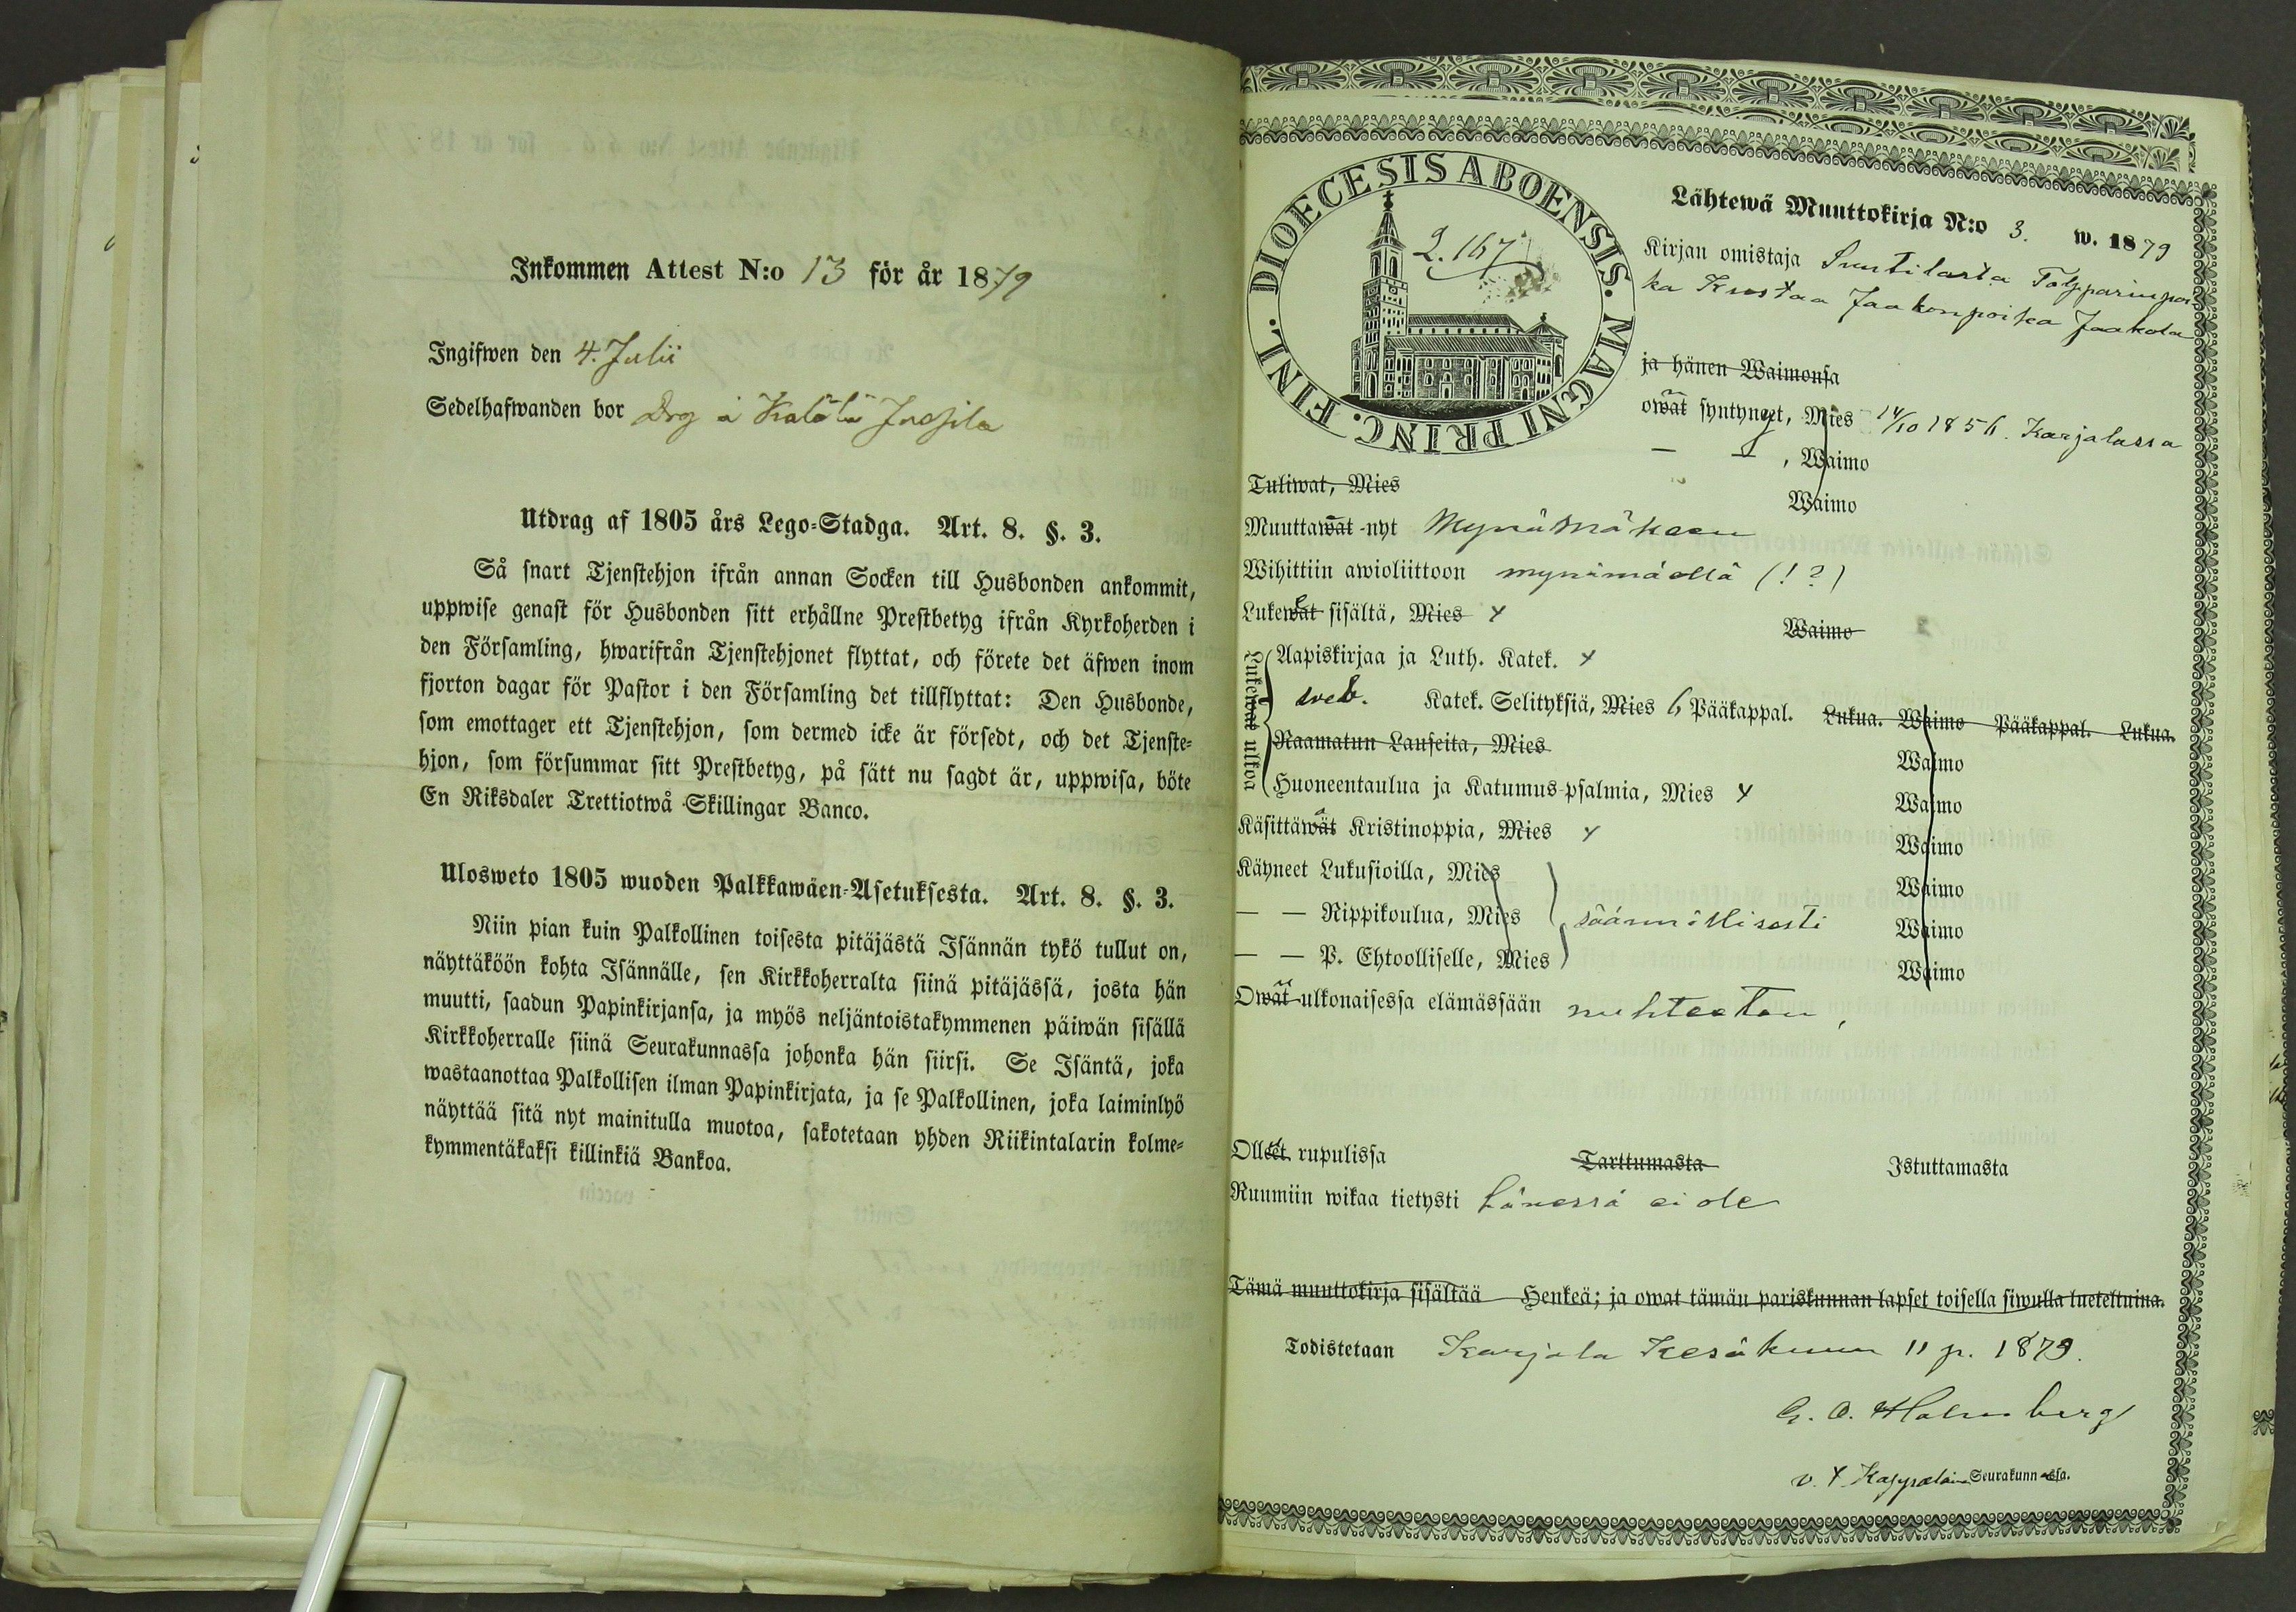 Inkommen Attest N:o 13 för år 1879
Ingifwen den 4. Julii
Sedelhafwanden bor Drg å Kalela Jassila
Utdrag af 1805 års Lego-Stadga. Art. 8. §. 3.
Så snart Tjenstehjon ifrån annan Socken till Husbonden ankommit,
uppwise genast för Husbonden sitt erhållne Prestbetyg ifrån Kyrkoherden i
den Församling, hwarifrån Tjenstehjonet flyttat, och förete det äfwen inom
fjorton dagar för Pastor i den Församling det tillflyttat: Den Husbonde,
som emottager ett Tjenstehjon, som dermed icke är försedt, och det Tjenste-
hjon, som försummar sitt Prestbetyg, på sätt nu sagdt är, uppwisa, böte
En Riksdaler Trettiotwå Skillingar Banco.
Ulosweto 1805 wuoden Palkkawäen-Asetuksesta. Art. 8. §. 3.
Niin pian kuin Palkollinen toisesta pitäjästä Isännän tykö tullut on,
näyttäköön kohta Isännälle, sen Kirkkoherralta siinä pitäjässä, josta hän
muutti, saadun Papinkirjansa, ja myös neljäntoistakymmenen päiwän sisällä
Kirkkoherralle siinä Seurakunnassa johonka hän siirsi. Se Isäntä, joka
wastaanottaa Palkollisen ilman Papinkirjata, ja se Palkollinen, joka laiminlyö
näyttää sitä nyt mainitulla muotoa, sakotetaan yhden Riikintalarin kolme-
kymmentäkaksi killinkiä Bankoa.
DIOECESIS ABOENSIS. MAGNI PRINC. FINL.
2.167
Lähtewä Muuttokirja N:o 3. w. 1879
Kirjan omistaja Suutilasta Torpparinpoi-
ka Kustaa Jaakonpoika Jaakola
ja hänen Waimonsa
owat syntyneet, Mies 14/10 1856. Karjalassa
— — , Waimo
Tuliwat, Mies
Waimo
Muuttawat nyt Mynämäkeen
Wihittiin awioliittoon mynämäellä (!?)
Lukewat sisältä, Mies x Waimo
Lukewat ulkoa
Aapiskirjaa ja Luth. Katek. x
Katek. Selityksiä, Mies 6 Pääkappal. Lukua. Waimo Pääkappal. Lukua.
Raamatun Lauseita, Mies Waimo
Huoneentaulua ja Katumus-psalmia, Mies x Waimo
Käsittäwät Kristinoppia, Mies x Waimo
Käyneet Lukusioilla, Mies Waimo
— — Rippikoulua, Mies säännöllisesti Waimo
— — P. Ehtoolliselle, Mies Waimo
Owat ulkonaisessa elämässään nuhteeton,
Olleet rupulissa Tarttumasta Istuttamasta
Ruumiin wikaa tietysti hänessä ei ole
Tämä muuttokirja sisältää Henkeä; ja owat tämän pariskunnan lapset toisella siwulla lueteltuina.
Todistetaan Karjala Kesäkuun 11 p. 1879.
G. O. Holmberg
v. t. Kappalainen Seurakunnassa.